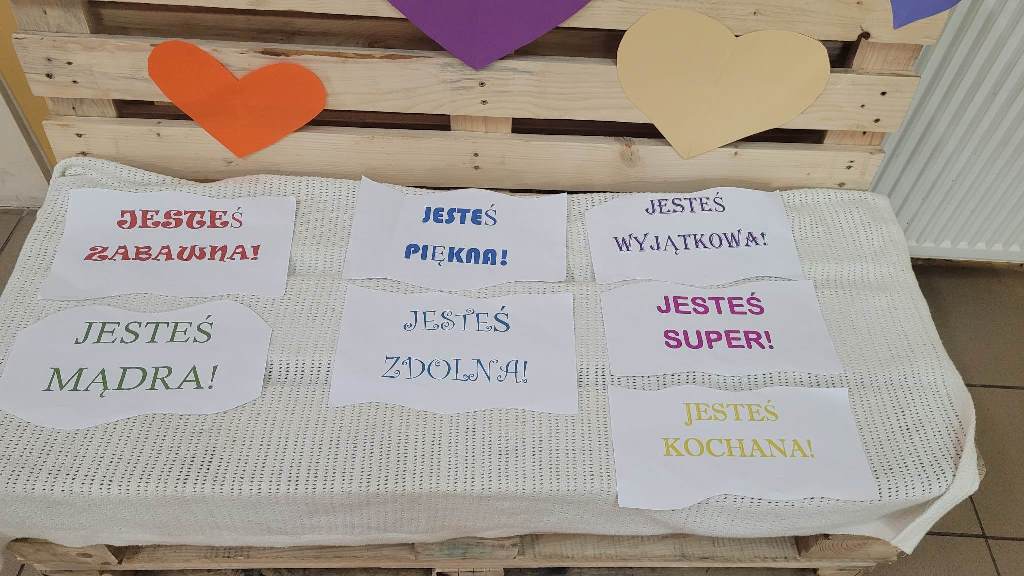 JESTEŚ
ZABAWNA!
JESTEŚ
PIĘKNA!
JESTEŚ
WYJĄTKOWA!
JESTEŚ
MĄDRA!
JESTEŚ
ZDOLNA!
JESTEŚ
SUPER!
JESTEŚ
KOCHANA!